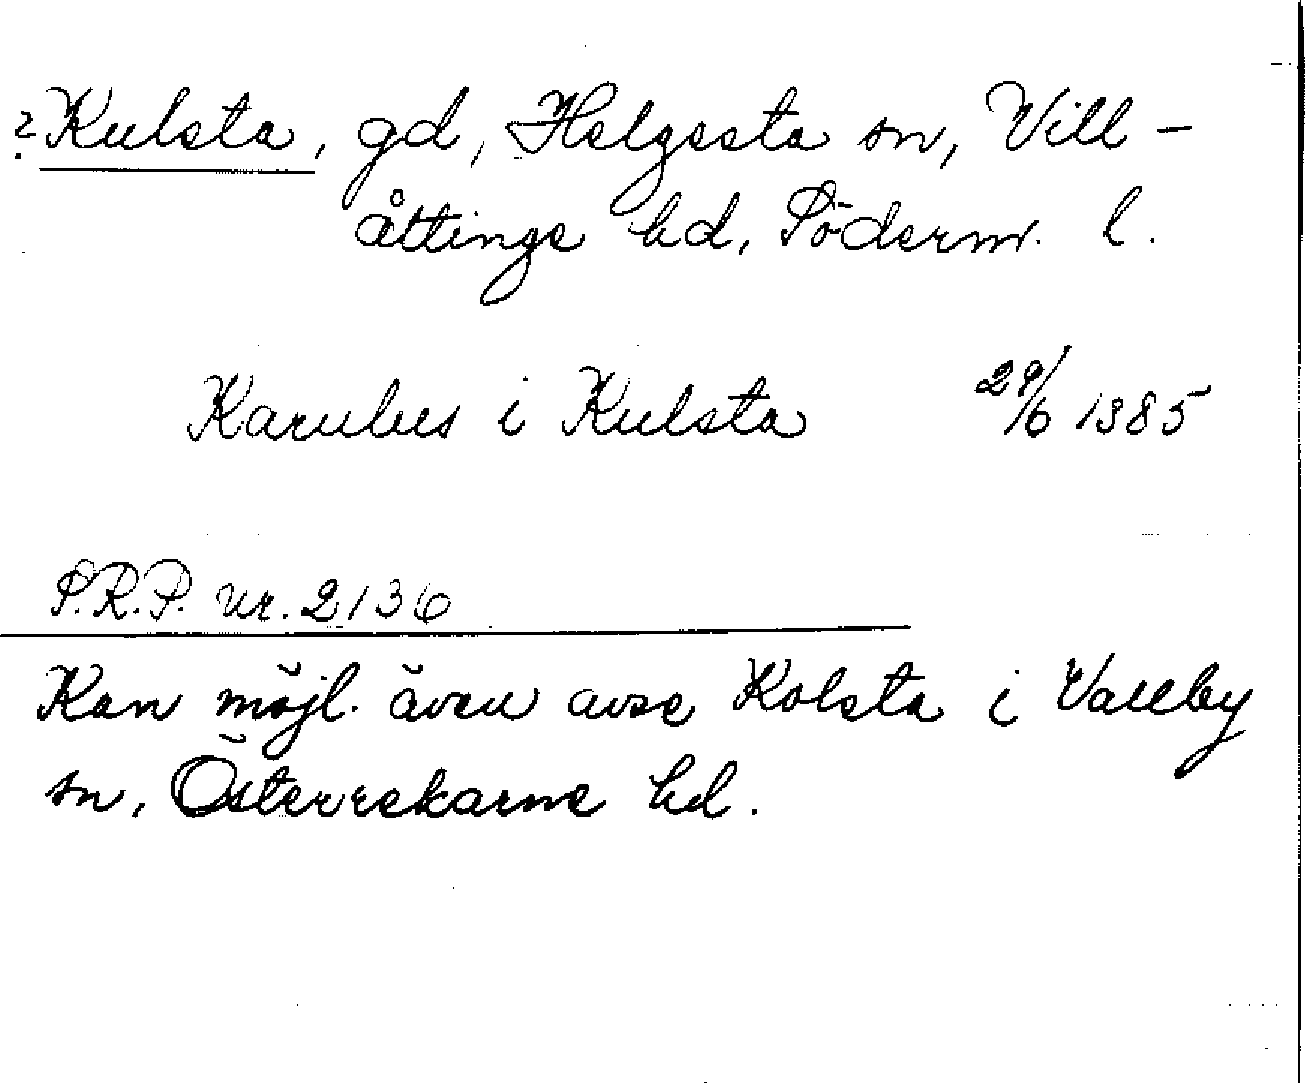 ? Kulsta, gd, Helgesta sn, Vill-
åttinge hd, Söderm. l.
Karulus i Kulsta 29/6 1385
S.R.P. nr. 2136
Kan möjl. även avse Kolsta i Vallby
sn, Österrekarne hd.